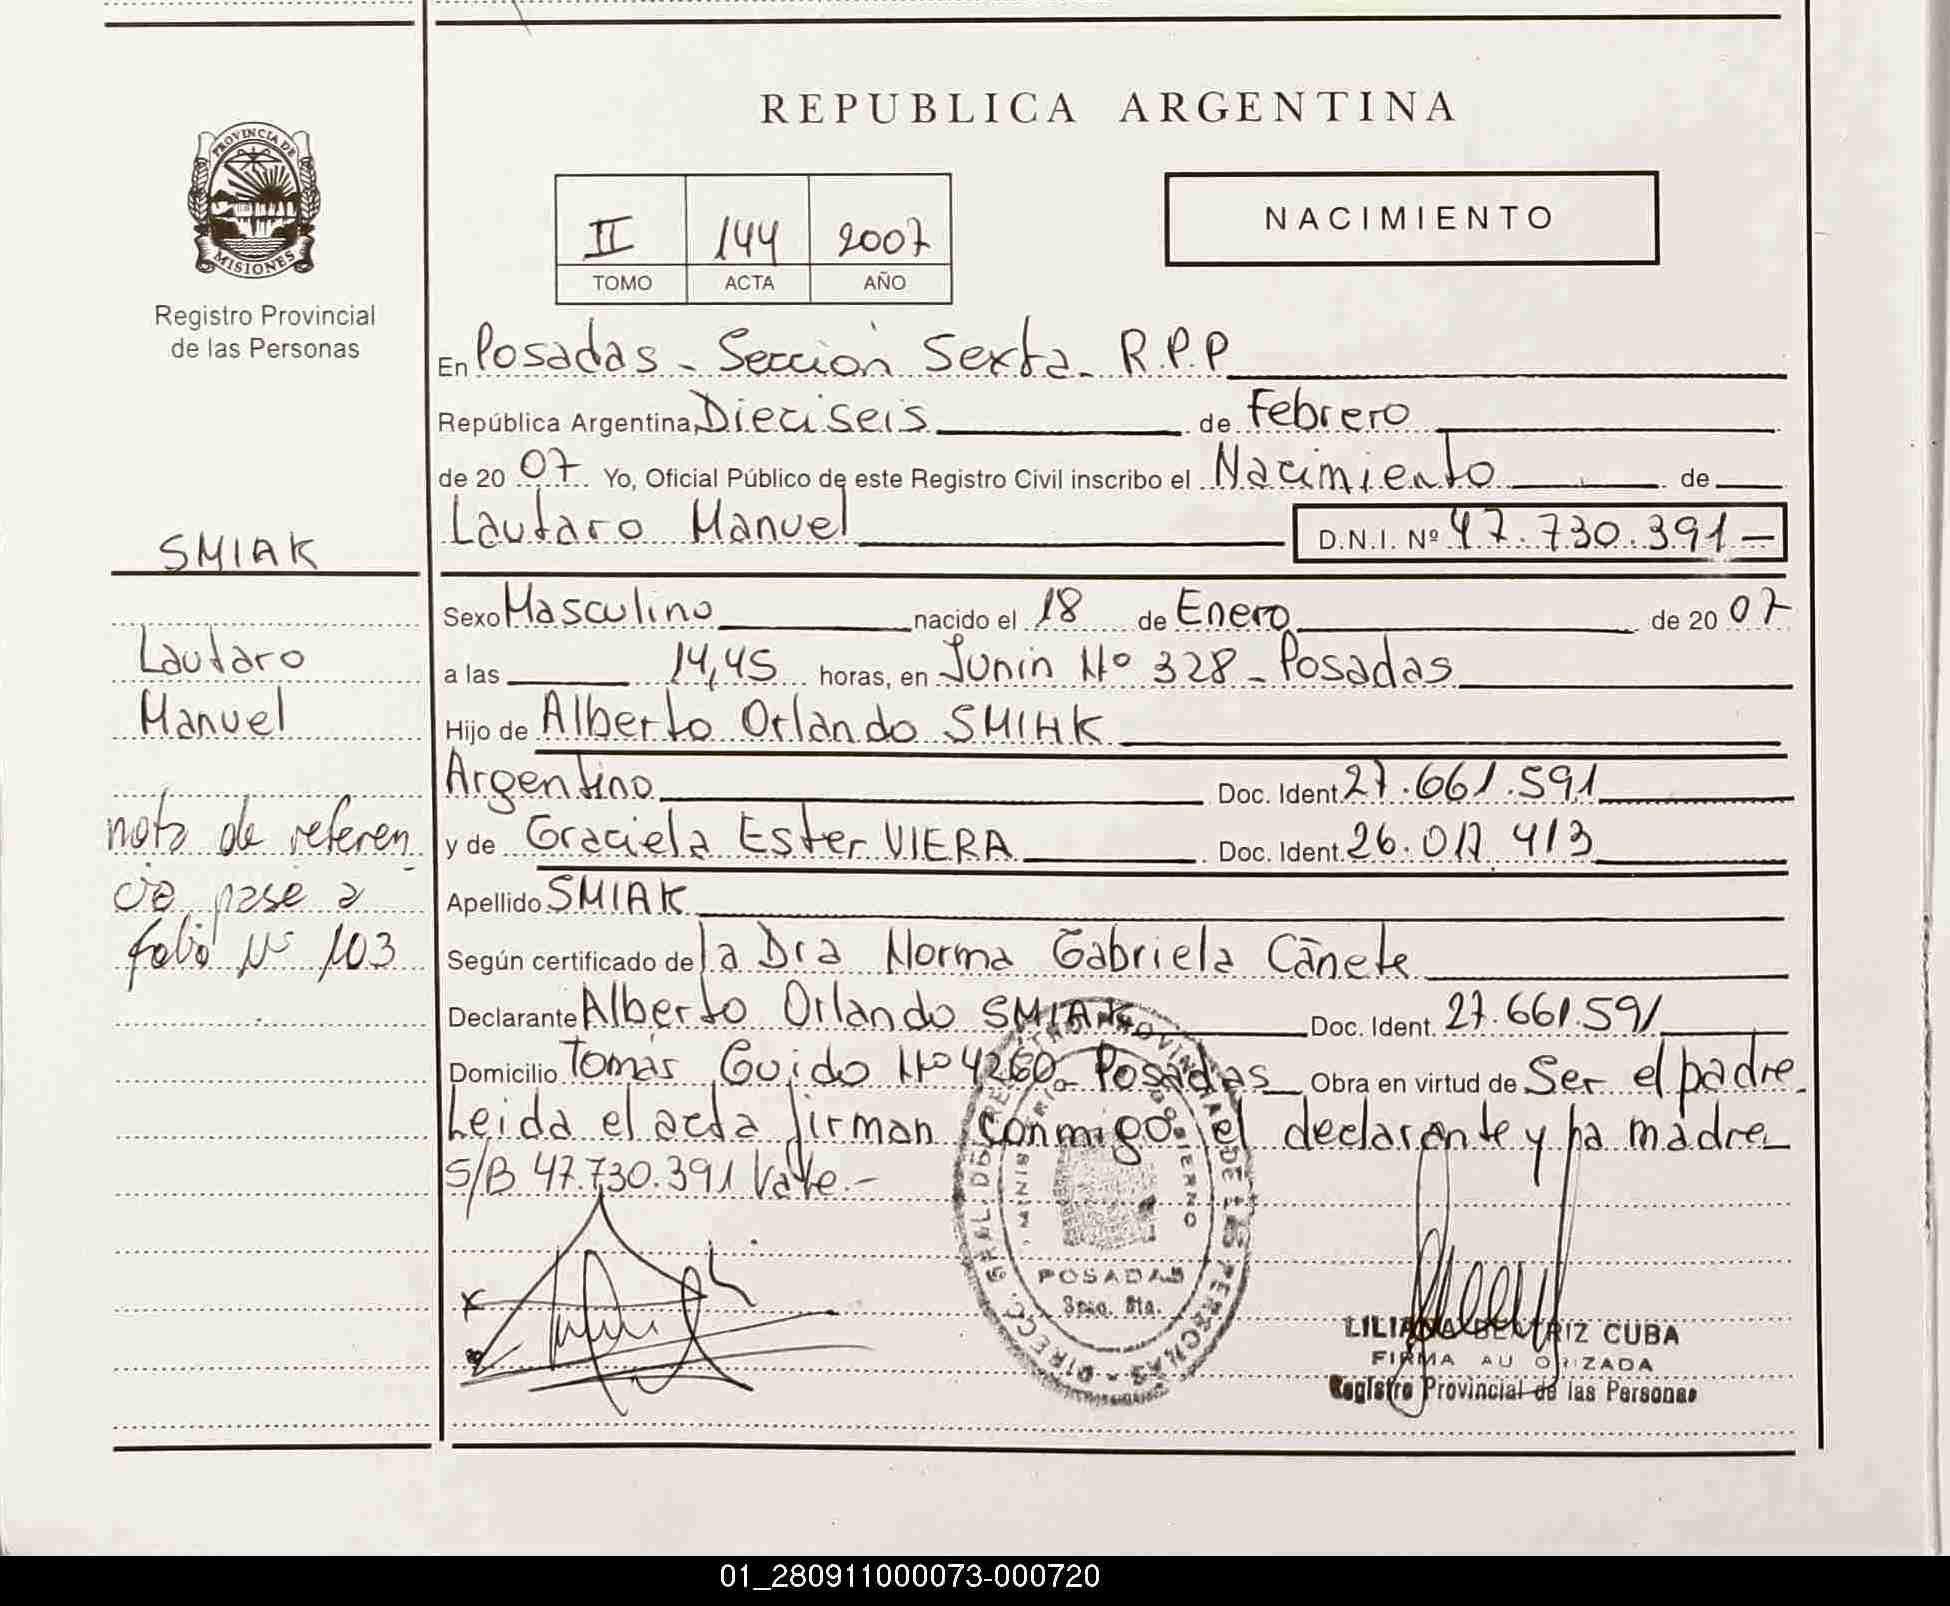 REPUBLICA ARGENTINA
PROVINCIA DE
MISIONES
Registro Provincial
de las Personas
II 144 2007
TOMO ACTA AÑO
NACIMIENTO
En Posadas - Sección Sexta - R.P.P
República Argentina, Dieciseis de Febrero
de 20 07 Yo, Oficial Público de este Registro Civil inscribo el Nacimiento de
Lautaro Manuel D.N.I. Nº 47.730.391-
SMIAK
Lautaro
Manuel
nota de referen
cia pase a
folio Nº 103
Sexo Masculino nacido el 18 de Enero de 20 07
a las 14,45 horas, en Junin Nº 328 - Posadas
Hijo de Alberto Orlando SMIAK
Argentino Doc. Ident. 27.661.591
y de Graciela Ester VIERA Doc. Ident. 26.017.413
Apellido SMIAK
Según certificado de la Dra Norma Gabriela Cañete
Declarante Alberto Orlando SMIAK Doc. Ident. 27.661.591
Domicilio Tomás Guido Nº 4260 - Posadas Obra en virtud de Ser el padre.
Leida el acta firman conmigo el declarante y la madre
S/B 47.730.391 Vale.-
DIRECC. GRAL. DE REGISTRO PROVINCIAL DE LAS PERSONAS
MINISTERIO DE GOBIERNO
POSADAS
Scio. 6ta.
LILIANA BEATRIZ CUBA
FIRMA AUTORIZADA
Registro Provincial de las Personas
01_280911000073-000720